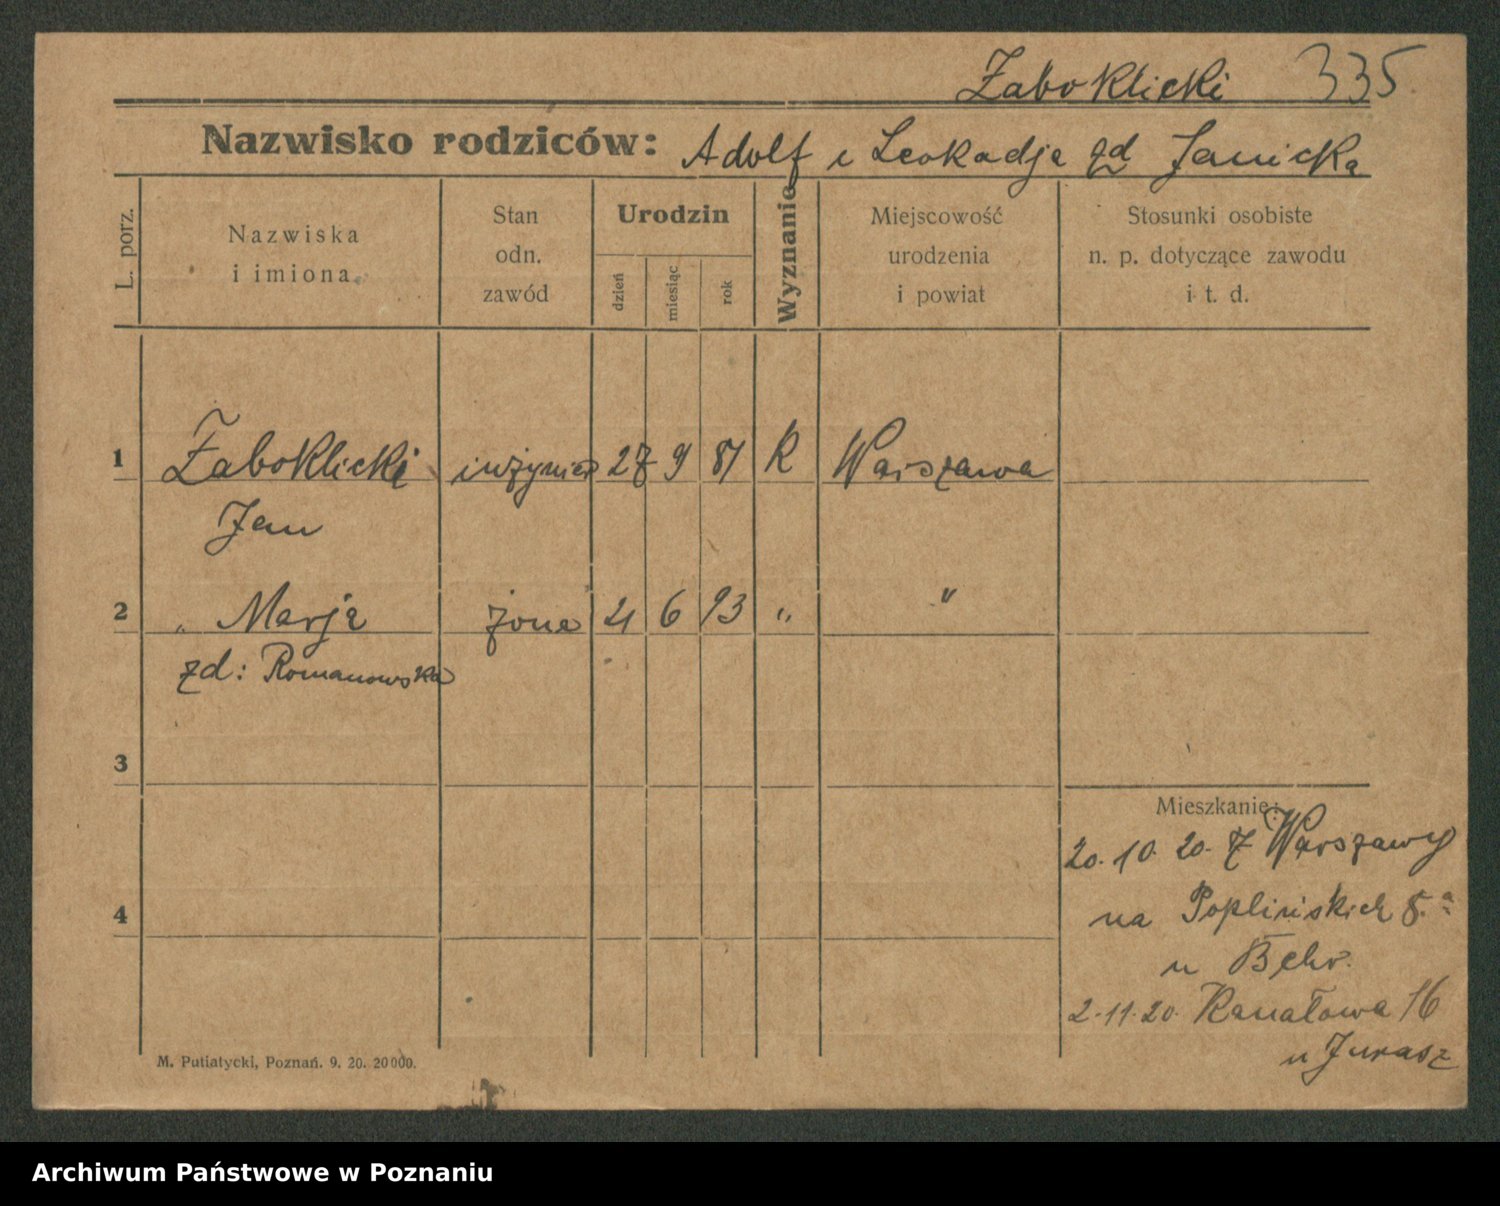 Żaboklicki 335
Nazwisko rodziców: Adolf i Leokadja zd Janicka
L. porz.
Nazwiska
i imiona.
Stan
odn.
zawód
Urodzin
dzień
miesiąc
rok
Wyznanie
Miejscowość
urodzenia
i powiat
Stosunki osobiste
n. p. dotyczące zawodu
i t. d.
1 Żaboklicki inżynier 27 9 81 K Warszawa
Jan
2 " Marja żona 21 6 93 " "
zd: Romanowska
3
Mieszkanie:
20. 10. 20. Z Warszawy
4
na Poplińskich 8.a
u Behr.
2.11.20. Kanałowa 16
u Jurasz
M. Putiatycki, Poznań. 9. 20. 20000.
Archiwum Państwowe w Poznaniu